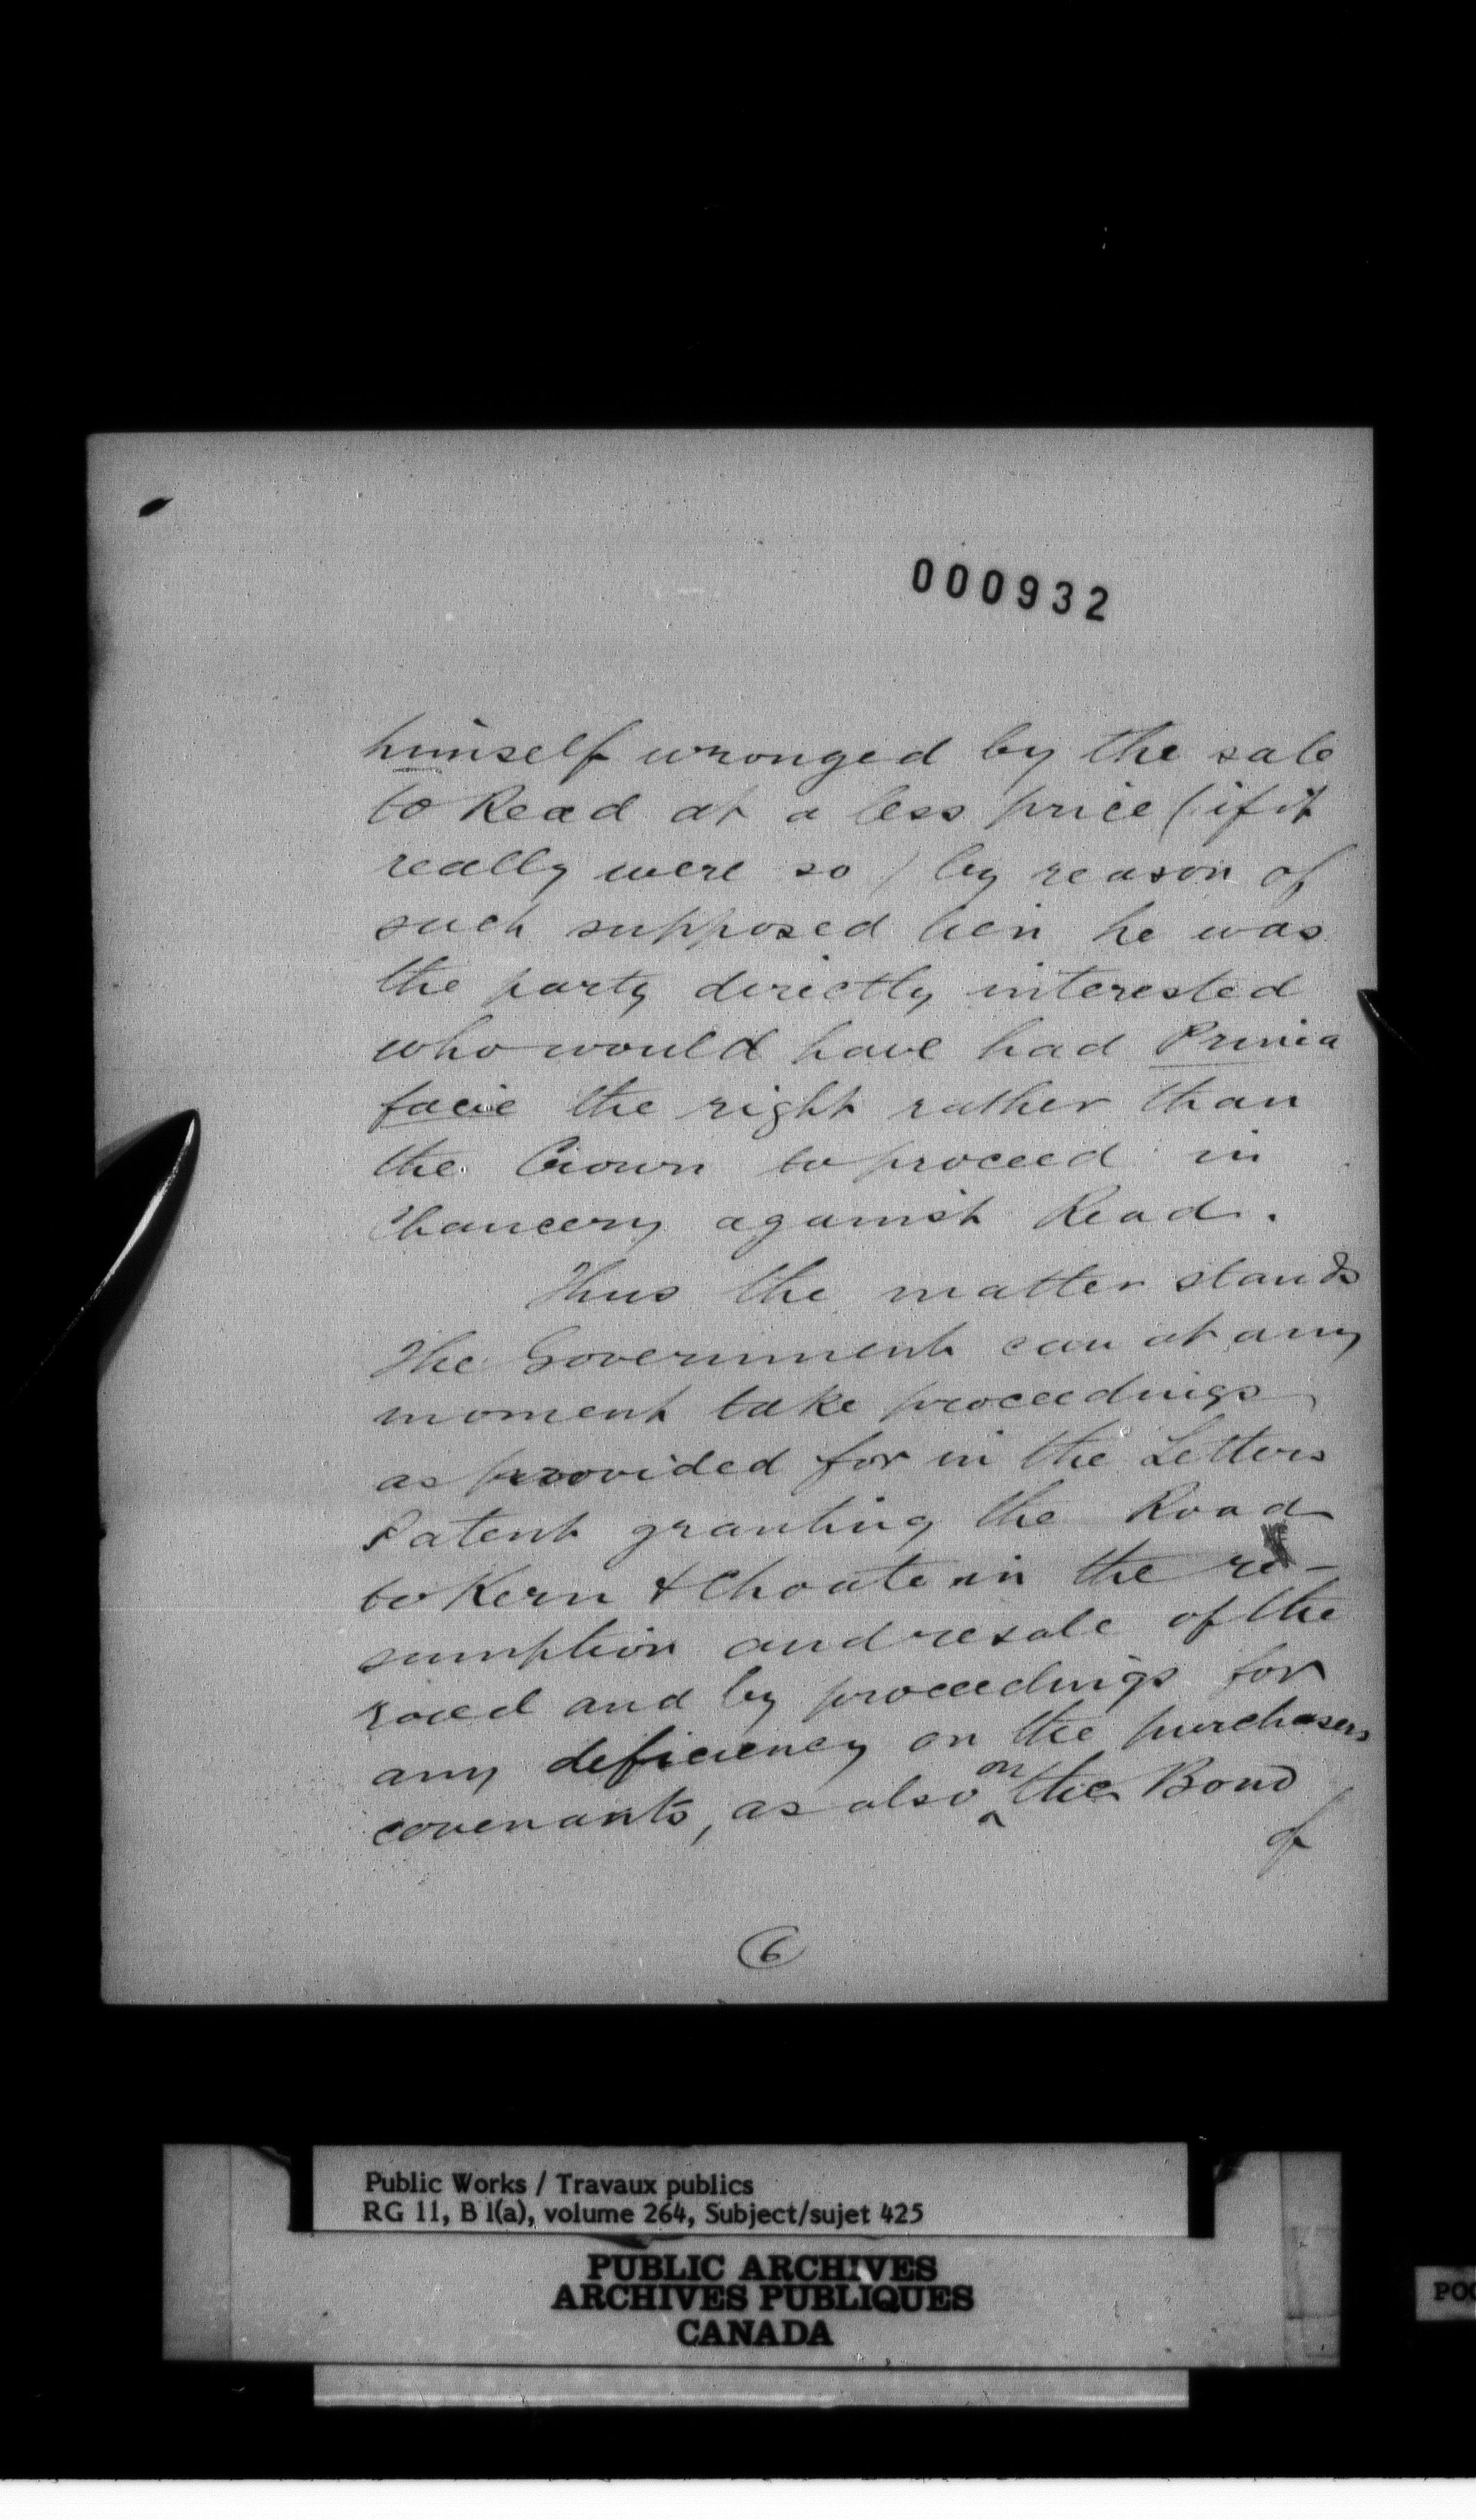 000932
himself wronged by the sale
to Read at a less price (if it
really were so) by reason of
such supposed lien he was
the party directly interested
who would have had Prima
facie the right rather than
the Crown to proceed in
Chancery against Read.
Thus the matter stands
The Government can at any
moment take proceedings
as provided for in the Letters
Patent granting the Road
to Kern & Choate in the re-
sumption and resale of the
road and by proceedings for
any deficiency on the purchasers
covenants, as also on the Bond
of
6
Public Works / Travaux publics
RG 11, B 1(a), volume 264, Subject/sujet 425
PUBLIC ARCHIVES
ARCHIVES PUBLIQUES
CANADA